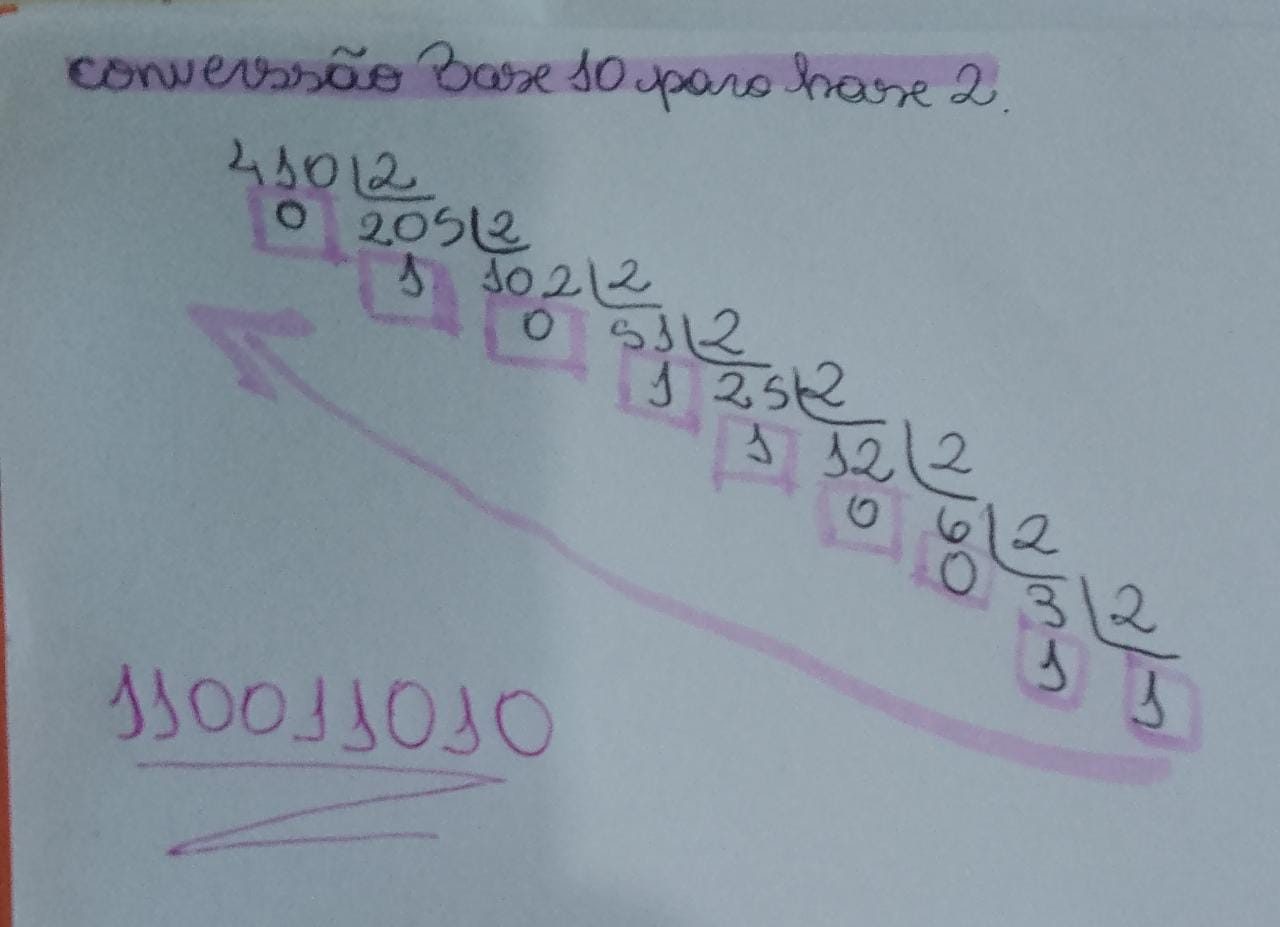 conversão Base 10 para base 2.
410 2
0 205 2
1 102 2
0 51 2
1 25 2
1 12 2
0 6 2
0 3 2
1 1
110011010